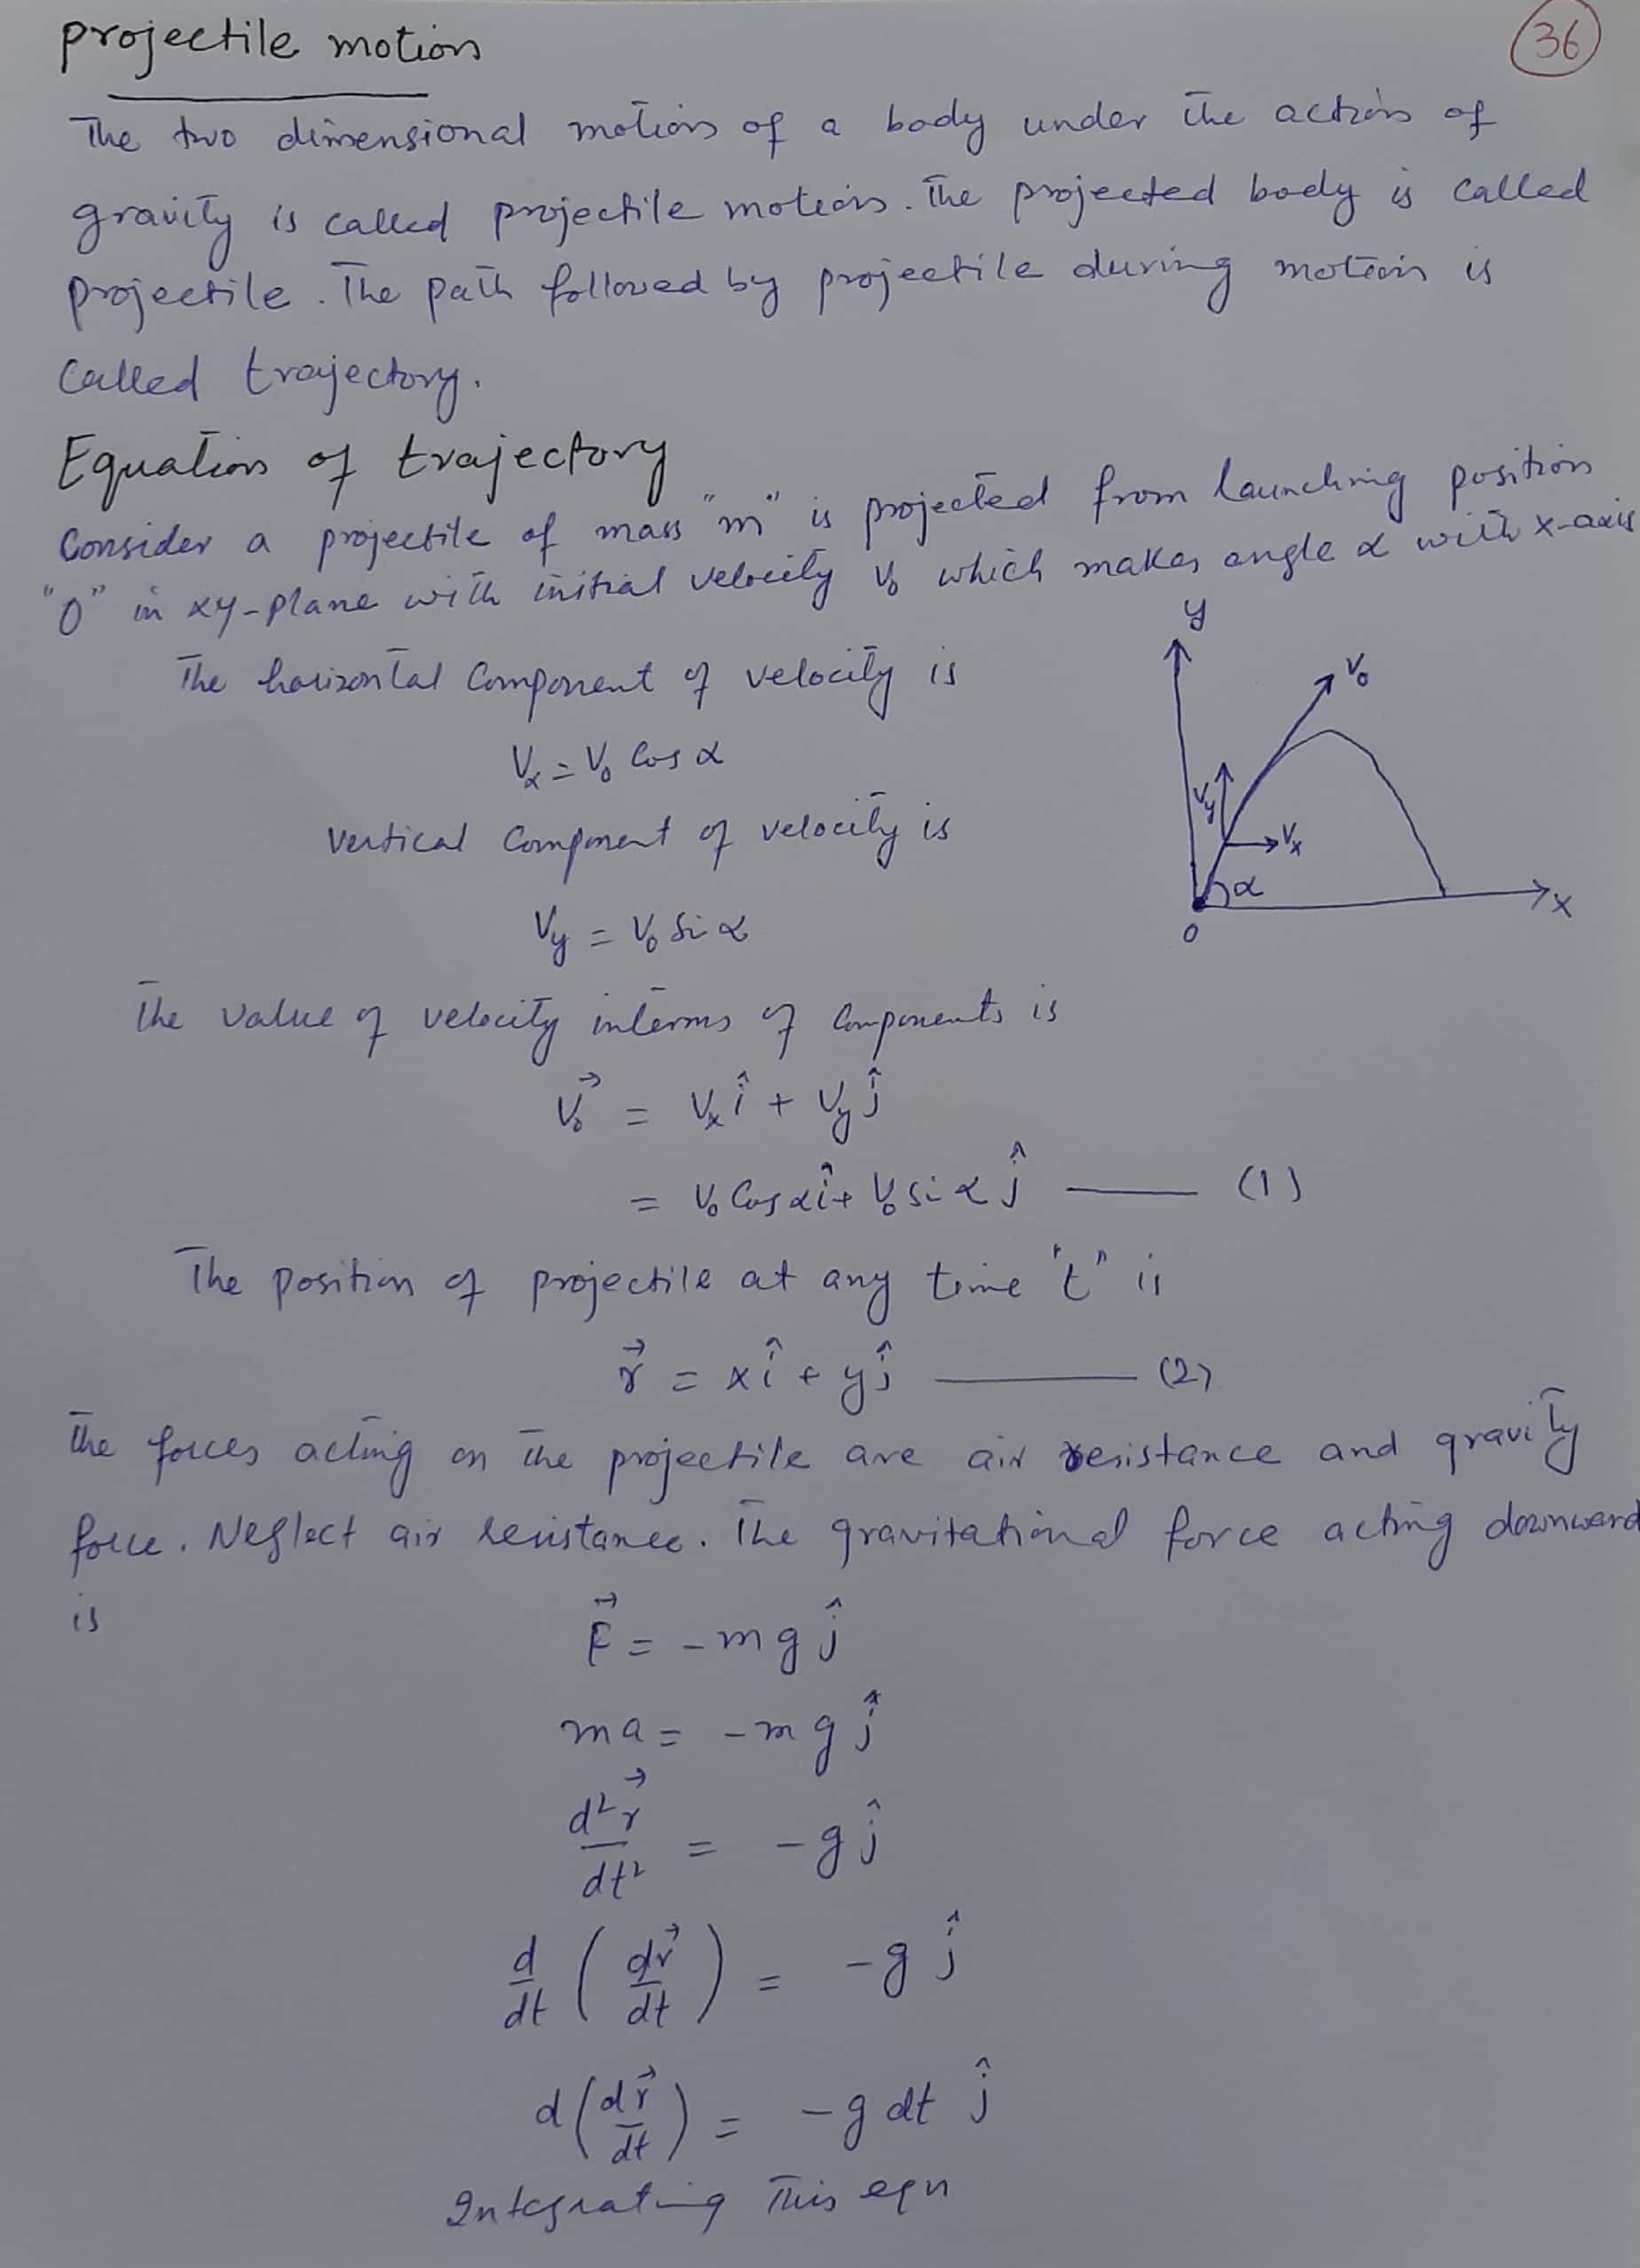 projectile motion
36
The two dimensional motion of a body under the action of
gravity is called projectile motion. The projected body is called
projectile. The path followed by projectile during motion is
called trajectory.
Equation of trajectory
Consider a projectile of mass "m" is projected from launching position
"O" in xy-plane with initial velocity V₀ which makes angle α with x-axis
The horizontal component of velocity is
Vₓ = V₀ Cos α
Vertical component of velocity is
V_y = V₀ Si α
y
V₀
V_y
Vₓ
α
x
O
The value of velocity interms of components is
V₀⃗ = Vₓ î + V_y ĵ
= V₀ Cos α î + V₀ Si α ĵ —— (1)
The position of projectile at any time "t" is
r⃗ = x î + y ĵ —— (2)
The forces acting on the projectile are air resistance and gravity
force. Neglect air resistance. The gravitational force acting downward
is
F⃗ = -mg ĵ
ma = -mg ĵ
d²r⃗/dt² = -g ĵ
d/dt (dr⃗/dt) = -g ĵ
d(dr⃗/dt) = -g dt ĵ
Integrating This eqn